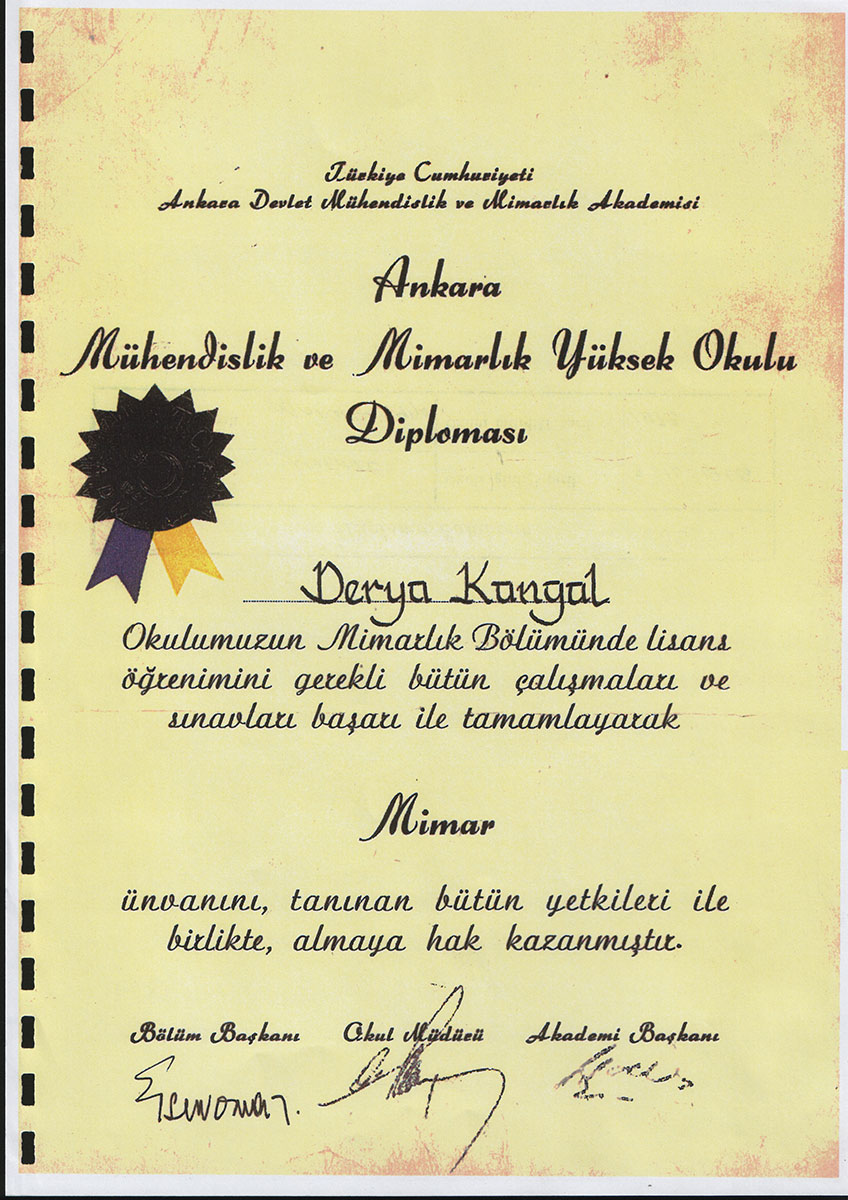 Türkiye Cumhuriyeti
Ankara Devlet Mühendislik ve Mimarlık Akademisi
Ankara
Mühendislik ve Mimarlık Yüksek Okulu
Diploması
Derya Kangal
Okulumuzun Mimarlık Bölümünde lisans
öğrenimini gerekli bütün çalışmaları ve
sınavları başarı ile tamamlayarak
Mimar
ünvanını, tanınan bütün yetkileri ile
birlikte, almaya hak kazanmıştır.
Bölüm Başkanı Okul Müdürü Akademi Başkanı